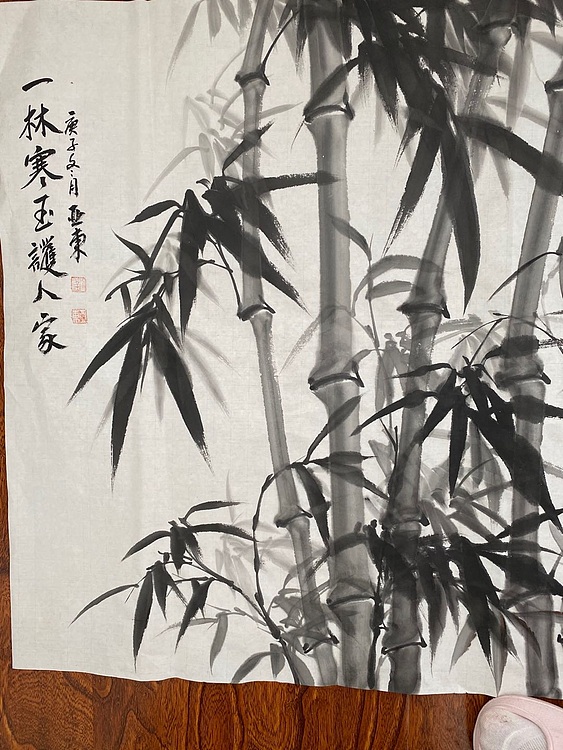 一林寒玉護人家
庚子冬月亚東